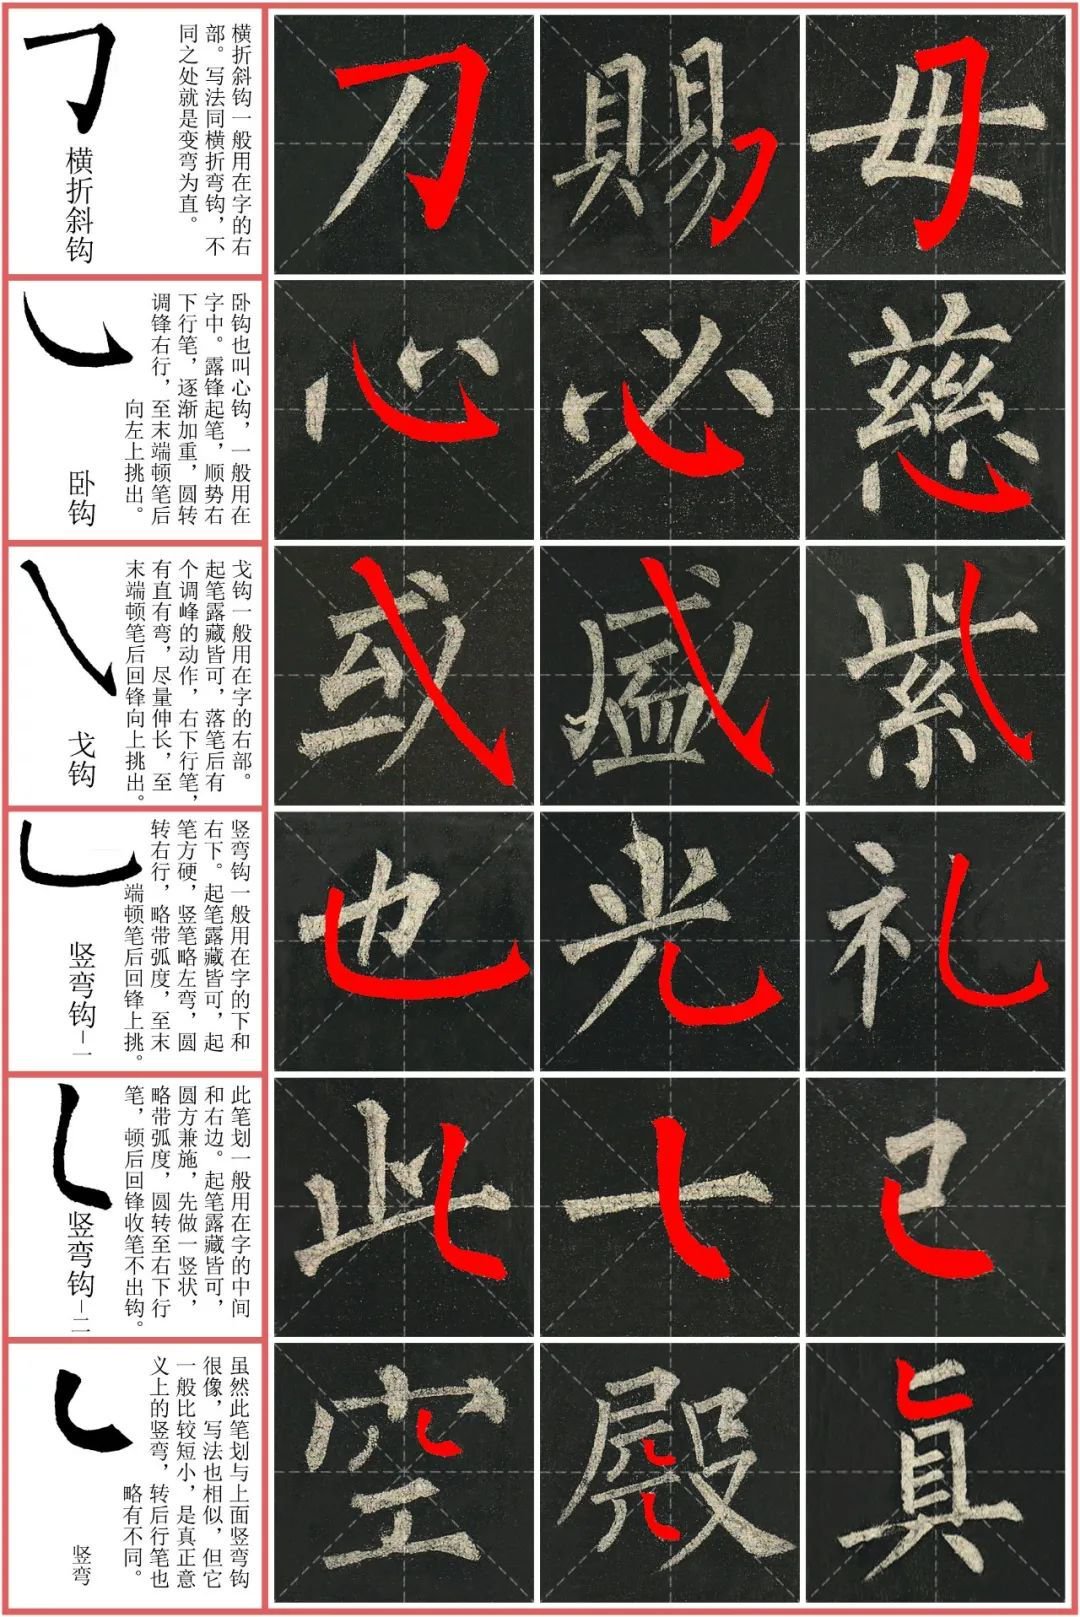 横折斜钩一般用在字的右
部。写法同横折弯钩，不
同之处就是变弯为直。
横折斜钩
刀
賜
毋
卧钩也叫心钩，一般用在
字中。露锋起笔，顺势右
下行笔，逐渐加重，圆转
调锋右行，至末端顿笔后
向左上挑出。
卧钩
心
必
慈
戈钩一般用在字的右部。
起笔露藏皆可，落笔后有
个调峰的动作，右下行笔，
有直有弯，尽量伸长，至
末端顿笔后回锋向上挑出。
戈钩
或
盛
竖弯钩一般用在字的下和
右下。起笔露藏皆可，起
笔方硬，竖笔略左弯，圆
转右行，略带弧度，至末
端顿笔后回锋上挑。
竖弯钩－一
也
光
礼
此笔划一般用在字的中间
和右边。起笔露藏皆可，
圆方兼施，先做一竖状，
略带弧度，圆转至右下行
笔，顿后回锋收笔不出钩。
竖弯钩－二
此
七
己
虽然此笔划与上面竖弯钩
很像，写法也相似，但它
一般比较短小，是真正意
义上的竖弯，转后行笔也
略有不同。
竖弯
空
殿
真